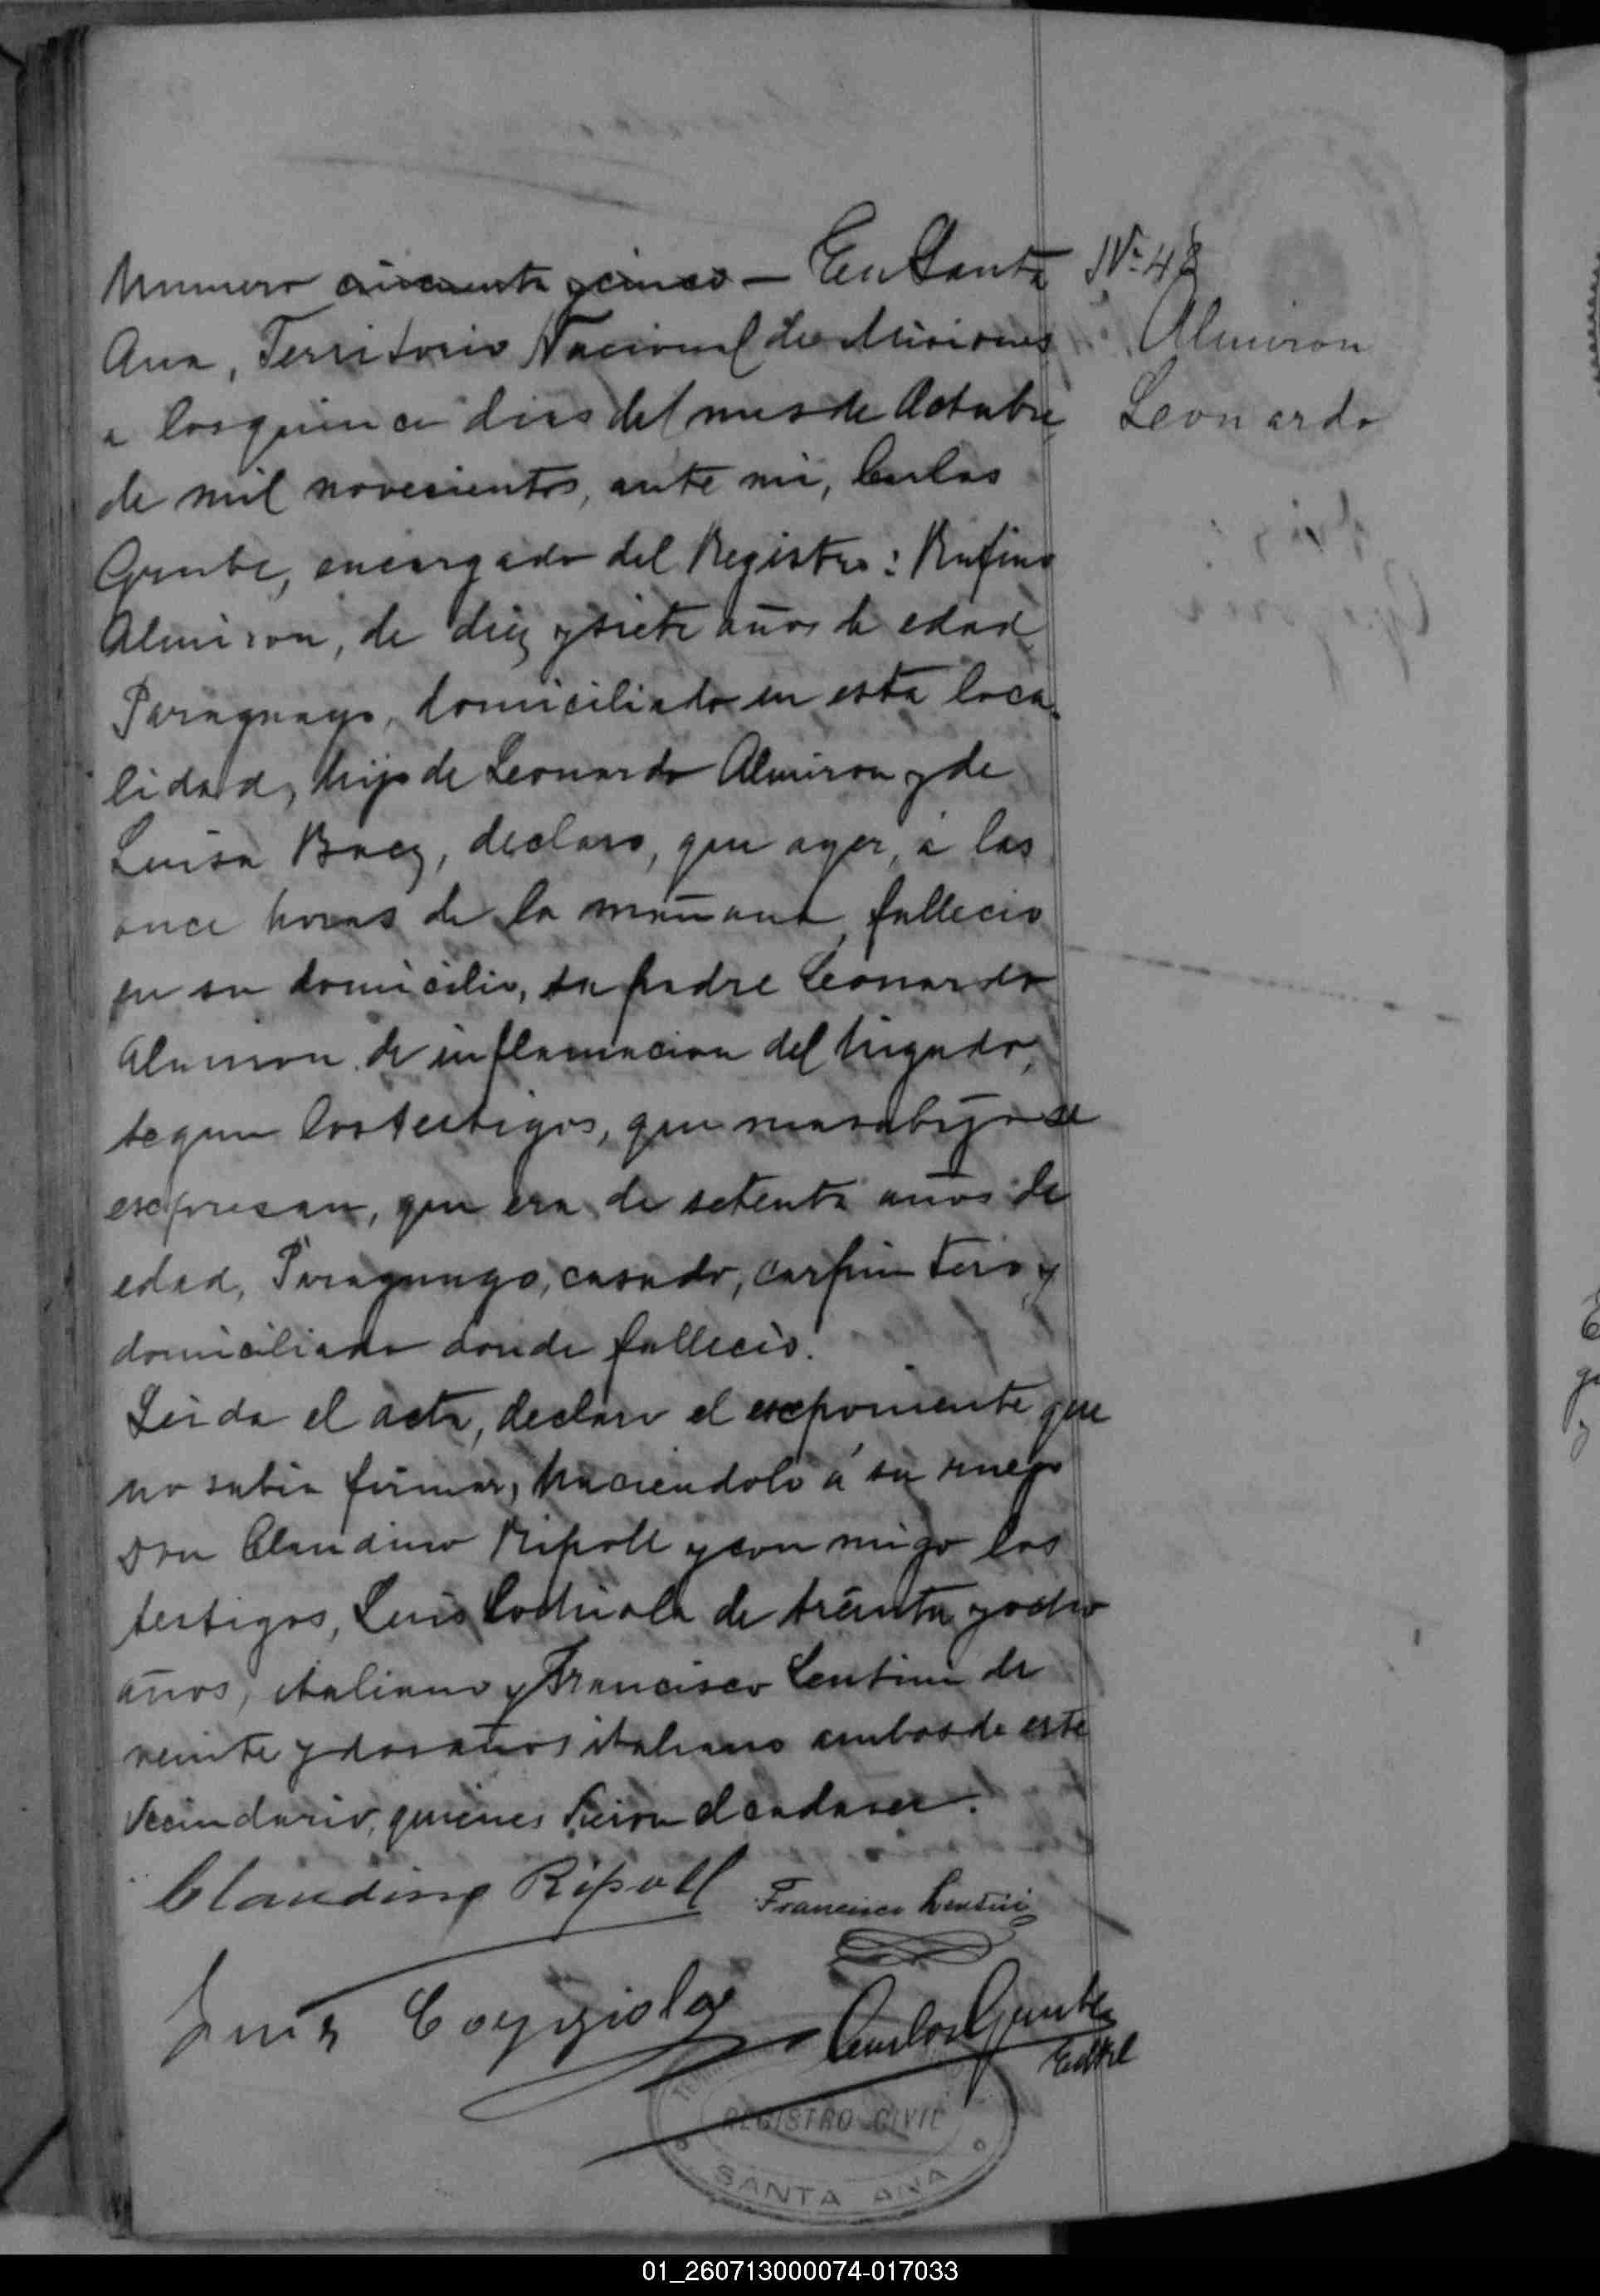 Numero cincuenta y cinco — En Santa
Ana, Territorio Nacional de Misiones
a los quince dias del mes de Octubre
de mil novecientos, ante mi, Carlos
Grube, encargado del Registro: Rufino
Almiron, de diez y siete años de edad,
Paraguayo, domiciliado en esta loca-
lidad, hijo de Leonardo Almiron y de
Luisa Baez, declaro, que ayer, á las
once horas de la mañana, fallecio
en su domicilio, su padre Leonardo
Almiron de inflamacion del higado,
segun los testigos, que mas abajo se
expresan, que era de setenta años de
edad, Paraguayo, casado, carpintero y
domiciliado donde fallecio.
Leida el acta, declaro el exponiente que
no sabia firmar, haciendolo á su ruego
Don Claudino Ripoll y con migo los
testigos, Luis de treinta y ocho
años, italiano y Francisco Lentini de
veinte y dos años italiano ambos de este
vecindario, quienes vieron el cadaver.
Claudino Ripoll Francisco Lentini
Luis Coggiola Carlos Grube
REGISTRO CIVIL
SANTA ANA
Nº 48
Almiron
Leonardo
01_260713000074-017033